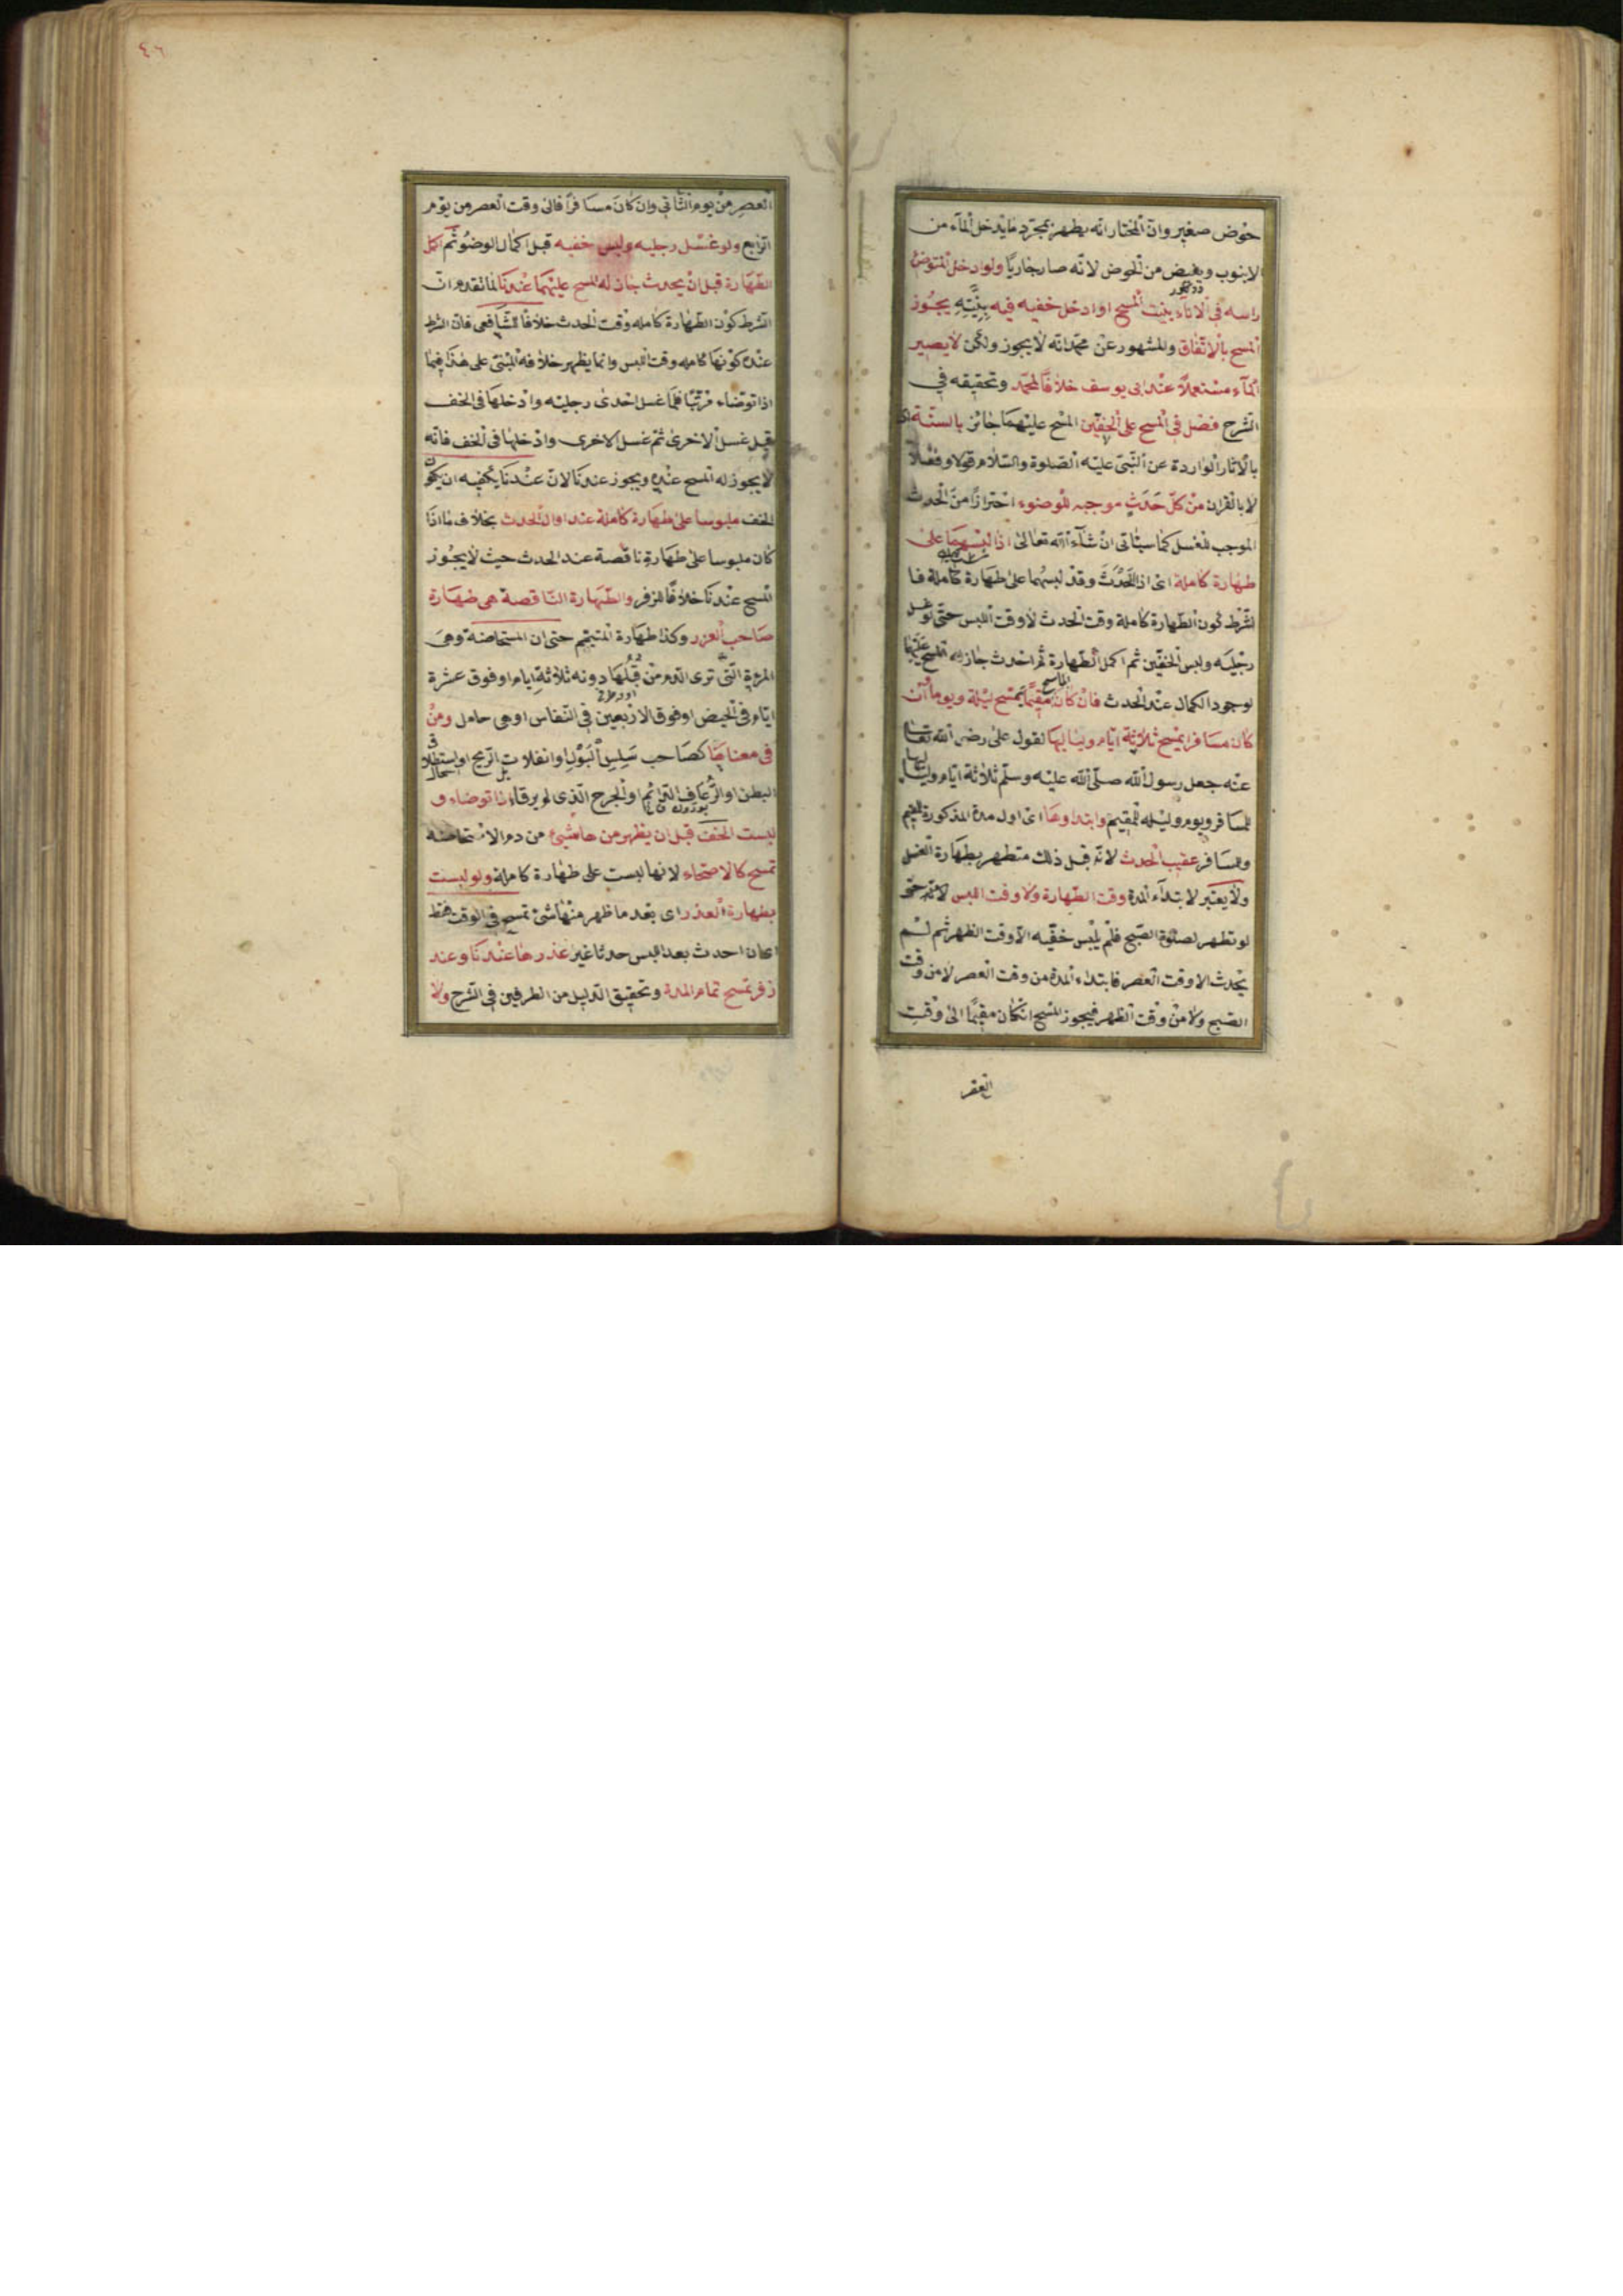 حوض صغير وان المختار انه يطهر بمجرد ما يدخل الماء من
الانبوب ويفيض من الحوض لانه صار جاريا ولو ادخل المتوضئ
راسه فى الاناء بنيت المسح او ادخل خفيه فيه بنيته يجوز
المسح بالاتفاق والمشهور عن محمد انه لا يجوز ولكن لا يصير
الماء مستعملا عند ابى يوسف خلافا لمحمد وتحقيقه في
الشرح فصل فى المسح على الخفين المسح عليهما جائز بالسنة اى
بالاثار الواردة عن النبى عليه الصلوة والسلام قولا وفعلا
لا بالقران من كل حدث موجبه للوضوء احترازا من الحدث
الموجب للغسل كما سيئاتى ان شاء الله تعالى اذا لبسهما على
طهارة كاملة اى اذا احدث وقد لبسهما على طهارة كاملة فا
لشرط كون الطهارة كاملة وقت الحدث لا وقت اللبس حتى لو غسل
رجليه ولبس الخفين ثم اكمل الطهارة ثم احدث جاز له المسح عليهما
لوجود الكمال عند الحدث فان كان الماسح مقيما يمسح ليلة ويوما وان
كان مسافرا يمسح ثلاثة ايام ولياليها لقول على رضى الله تعالى
عنه جعل رسول الله صلى الله عليه وسلم ثلاثة ايام ولياليها
للمسافر ويوم وليله للمقيم وابتداوها اى اول مدة المذكورة للمقيم
وللمسافر عقيب الحدث لانه قبل ذلك متطهر بطهارة الغسل
ولا يعتبر لابتداء المدة وقت الطهارة ولا وقت اللبس لانه حتى
لو تطهر لصلوة الصبح فلم يلبس خفيه الا وقت الظهر ثم لم
يحدث الا وقت العصر فابتداء المدة من وقت العصر لا من وقت
الصبح ولا من وقت الظهر فيجوز المسح ان كان مقيما الى وقت
العصر
٤٦
العصر من يوم الثانى وان كان مسافرا فالى وقت العصر من يوم
الرابع ولو غسل رجليه ولبس خفيه قبل اكمال الوضوء ثم اكمل
الطهارة قبل ان يحدث جاز له المسح عليهما عندنا لما تقدم ان
الشرط كون الطهارة كامله وقت الحدث خلافا للشافعى فان الشرط
عنده كونها كامله وقت اللبس وانما يظهر خلافه المبنى على هذا فيما
اذا توضاء مرتبا فلما غسل احدى رجليه وادخلها فى الخف
قبل غسل الاخرى ثم غسل الاخرى وادخلها فى الخف فانه
لا يجوز له المسح عنده ويجوز عندنا لان عندنا يكفيه ان يكون
الخف ملبوسا على طهارة كاملة عند اول الحدث بخلاف ما اذا
كان ملبوسا على طهارة ناقصة عند الحدث حيث لا يجوز
المسح عندنا خلافا لزفر والطهارة الناقصة هى طهارة
صاحب العزر وكذا طهارة المتيمم حتى ان المستحاضة وهى
المرءة التى ترى الدم من قبلها دونه ثلاثة ايام او فوق عشرة
ايام فى الحيض او فوق الاربعين فى النفاس او هى حامل ومن
فى معناها كصاحب سلس البول او انفلات الريح او استطلاق
البطن او الرعاف الدائم او الجرح الذى لم يرقاء اذا توضاء و
لبست الخف قبل ان يظهر من ها شئ من دم الاستحاضه
تمسح كالاصحاء لانها لبست على طهارة كاملة ولو لبست
بطهارة العذر اى بعد ما ظهر منها شئ تمسح فى الوقت فقط
اى ان احدث بعد اللبس حدثا غير عذرها عندنا وعند
زفر تمسح تمام المدة وتحقيق الدليل من الطرفين فى الشرح ولا